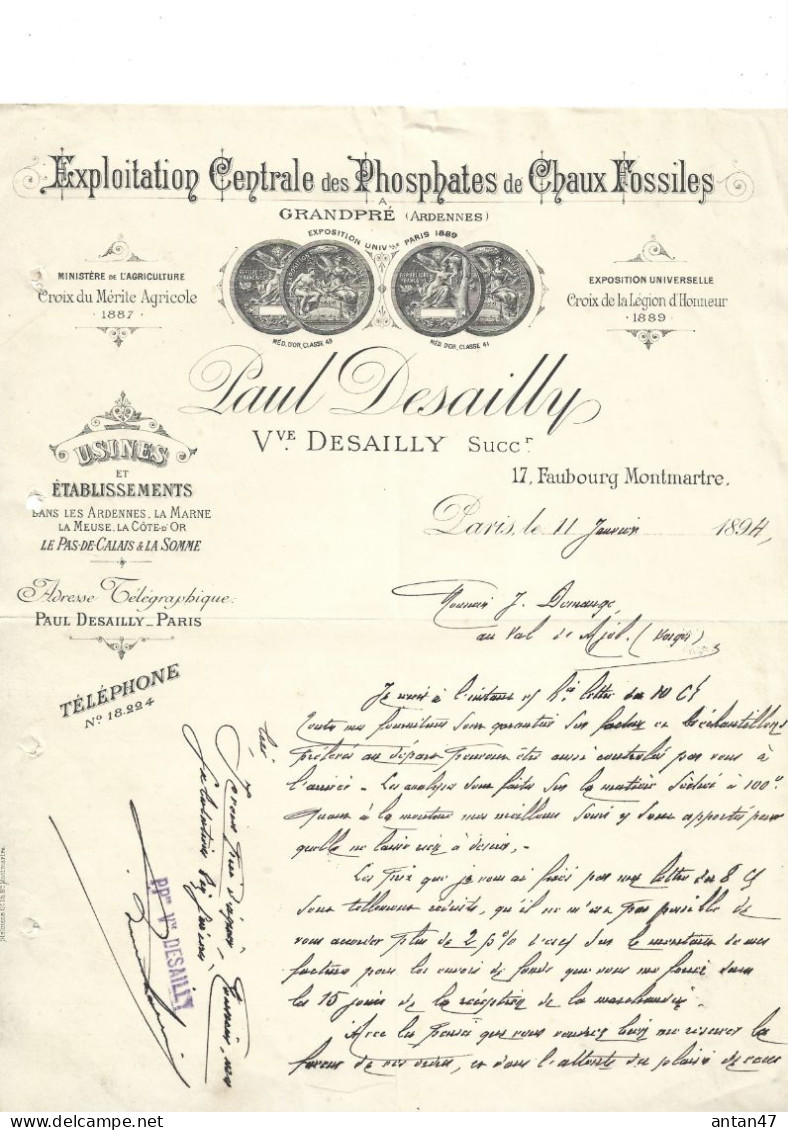 Exploitation Centrale des Phosphates de Chaux Fossiles
A
GRANDPRÉ (ARDENNES)
EXPOSITION UNIVLLE PARIS 1889
MINISTÈRE DE L'AGRICULTURE
Croix du Mérite Agricole
1887
MÉD. D'OR, CLASSE 49
MÉD. D'OR, CLASSE 41
EXPOSITION UNIVERSELLE
Croix de la Légion d'Honneur
1889
Paul Desailly
VVE DESAILLY Succr.
17, Faubourg Montmartre.
USINES
ET
ÉTABLISSEMENTS
DANS LES ARDENNES, LA MARNE
LA MEUSE, LA CÔTE-D'OR
LE PAS-DE-CALAIS & LA SOMME
Adresse Télégraphique:
PAUL DESAILLY_PARIS
TÉLÉPHONE
No 18.224
Paris, le 11 Janvier 1894,
Monsieur J. Demange,
au Val de Ajol. (Vosges)
Je reçois à l'instant lettre du 10 Ct
Toutes mes fournitures sont garanties sur facture et les échantillons
prélevés au départ peuvent être aussi contrôlés par vous à
l'arrivée - Les analyses sont faites sur la matière séchée à 100°.
Quant à la mouture mes meilleurs soins y sont apportés pour
qu'elle ne laisse rien à désirer.-
Les prix que je vous ai faits par ma lettre du 8 Ct
sont tellement réduits, qu'il ne m'est pas possible de
vous accorder plus de 2% sur le montant de mes
factures pour les envois de fonds que vous me ferez dans
les 15 jours de la réception de la marchandise.
Avec la pensée que vous voudrez bien me réserver la
faveur de vos ordres, et dans l'attente du plaisir de vous
lire
Je vous prie d'agréer, Monsieur, mes
salutations
PPon Vve DESAILLY
antan47